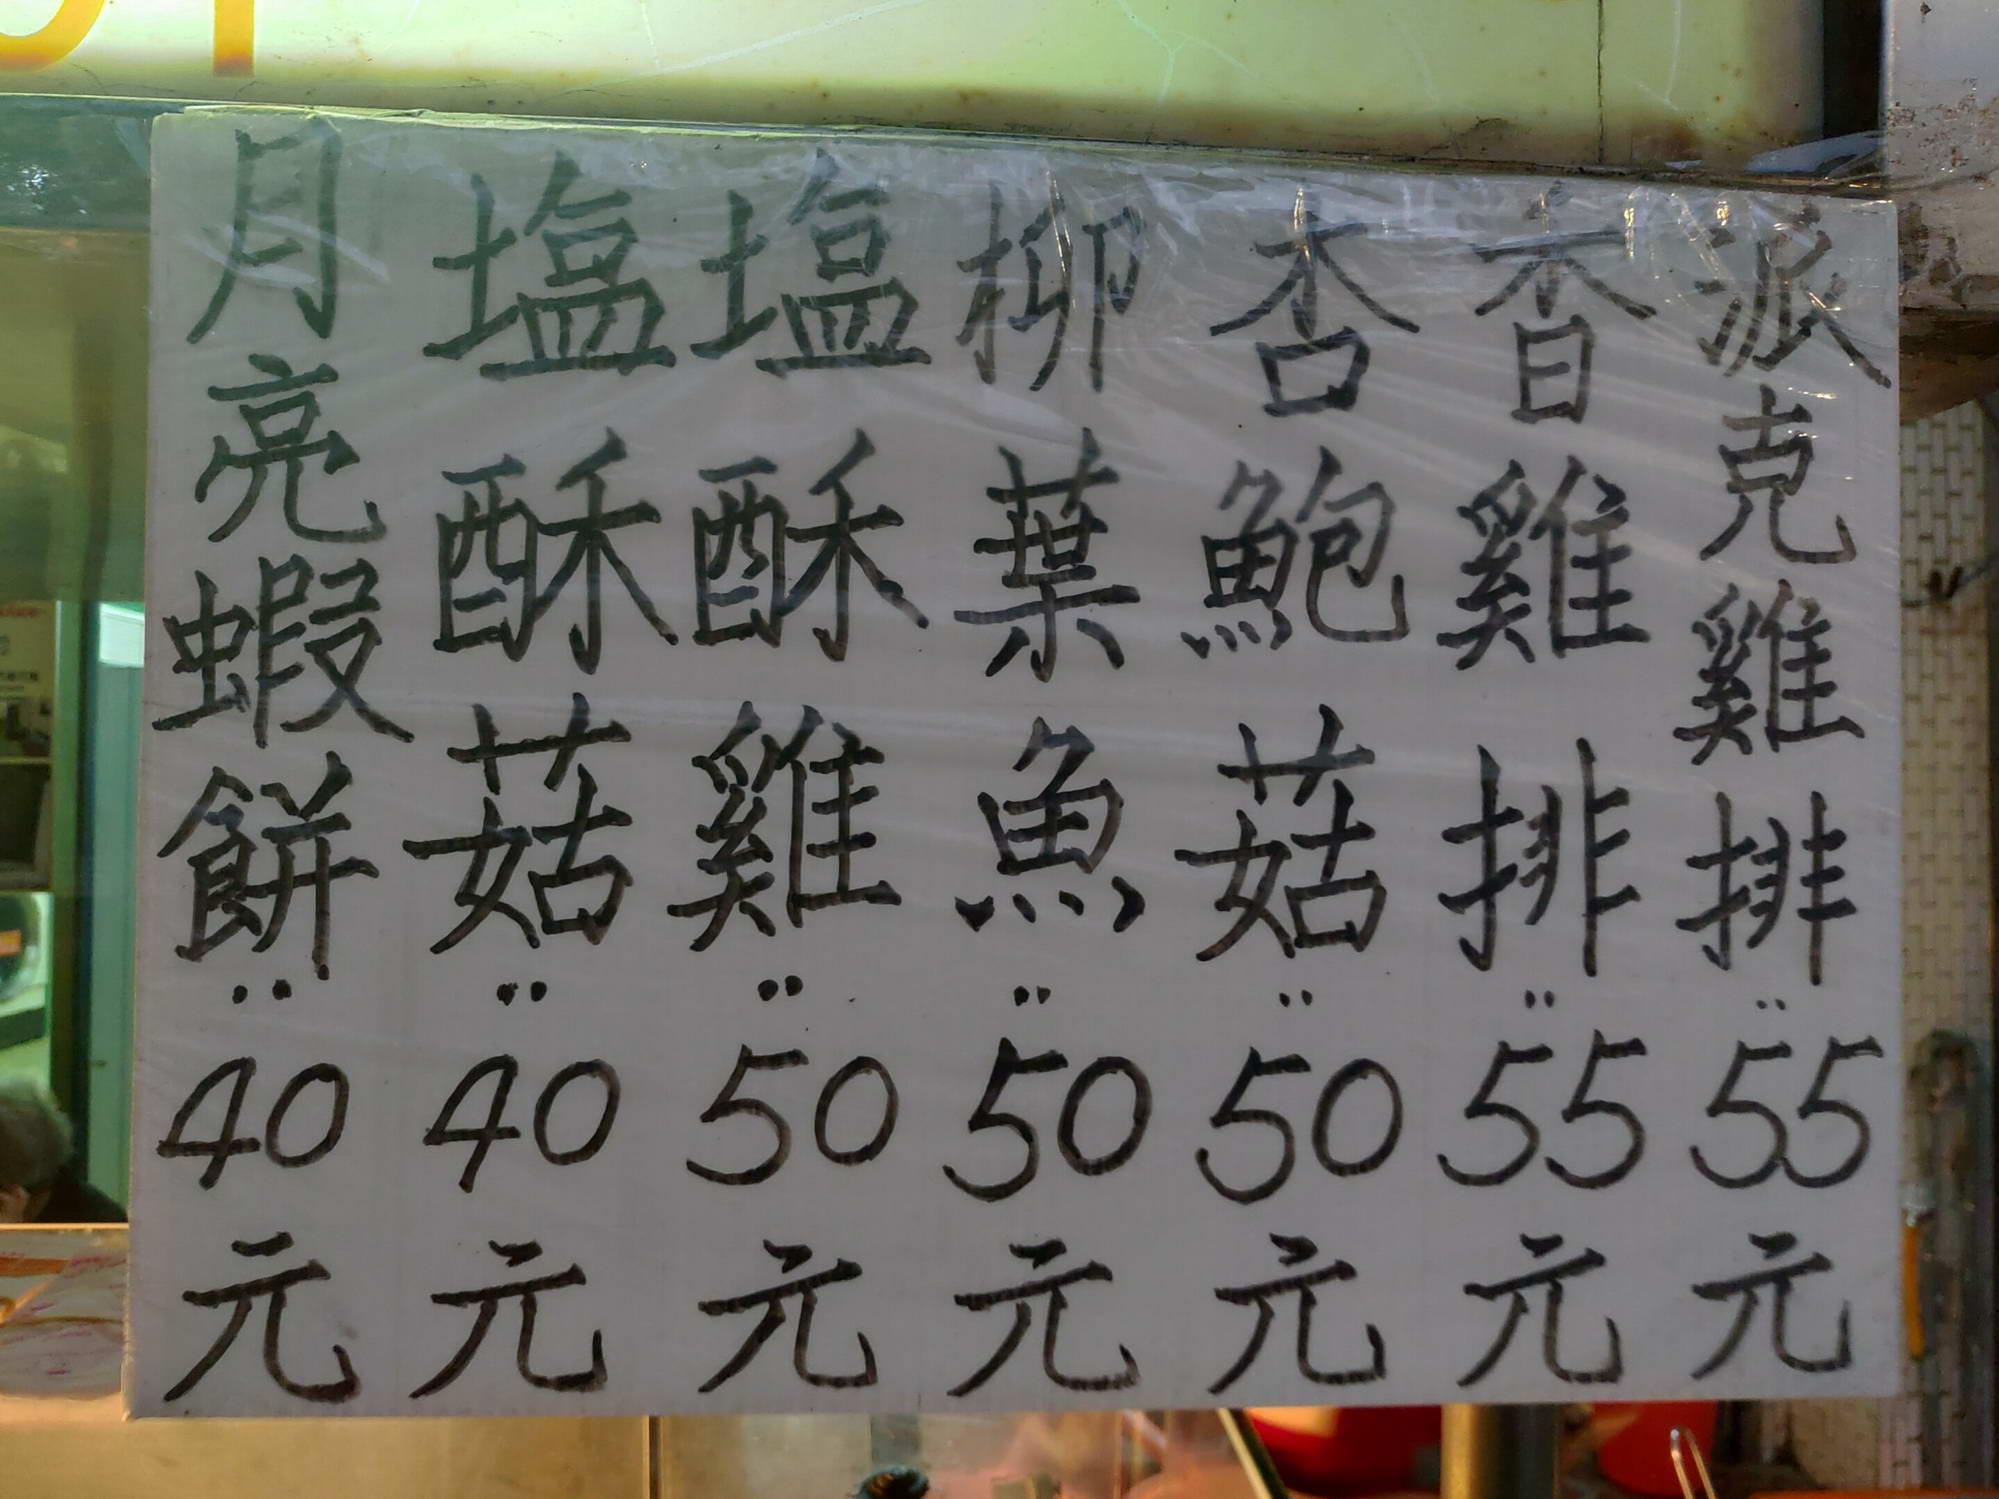 派克雞排：55元
香雞排：55元
杏鮑菇：50元
柳葉魚：50元
塩酥雞：50元
塩酥菇：40元
月亮蝦餅：40元